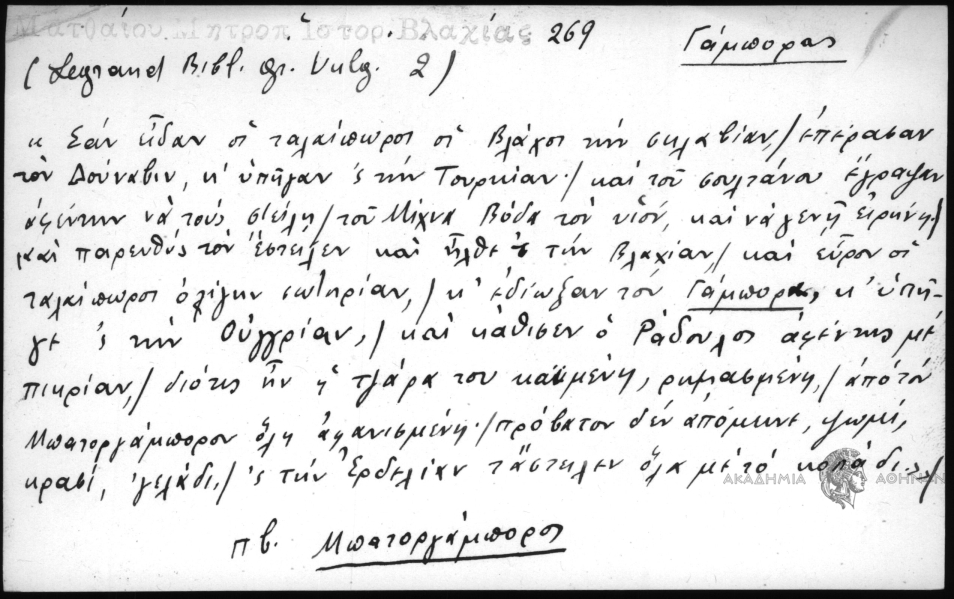 Ματθαίου Μητροπ Ἱστορ. Βλαχίας 269 Γάμπορας
(Legrand Bibl. gr. Vulg. 2)
« Σὰν εἶδαν οἱ ταλαίπωροι οἱ Βλάχοι τὴν σκλαβίαν,/ ἐπέρασαν
τὸν Δούναβιν, κ' ὑπῆγαν 'ς τὴν Τουρκίαν·/ καὶ τοῦ σουλτάνου ἔγραψαν
ἀφέντην νὰ τοὺς στείλῃ,/ τοῦ Μίχνα Βόδα τὸν υἱόν, καὶ νὰ γενῇ εἰρήνη·/
καὶ παρευθὺς τὸν ἔστειλεν καὶ ἦλθε 'ς τὴν Βλαχίαν,/ καὶ εὗρον οἱ
ταλαίπωροι ὀλίγην σωτηρίαν,/ κ' ἐδίωξαν τὸν Γάμπορα, κ' ὑπῆ-
γε 'ς τὴν Οὐγγρίαν,/ καὶ κάθισεν ὁ Ράδουλος ἀφέντης μὲ
πικρίαν,/ διότις ἦν ἡ τζάρα του καϋμένη, ρημασμένη,/ ἀπὸ τὸν
Μπατοργάμπορον ὅλη ἀφανισμένη·/ πρόβατον δὲν ἀπόμεινε, ψωμί,
κρασί, 'γελάδι,/ 'ς τὴν Ἐρδελίαν τἄστειλεν ὅλα μὲ τὸ κοπάδι.»/
ΑΚΑΔΗΜΙΑ ΑΘΗΝΩΝ
πβ. Μπατοργάμπορος